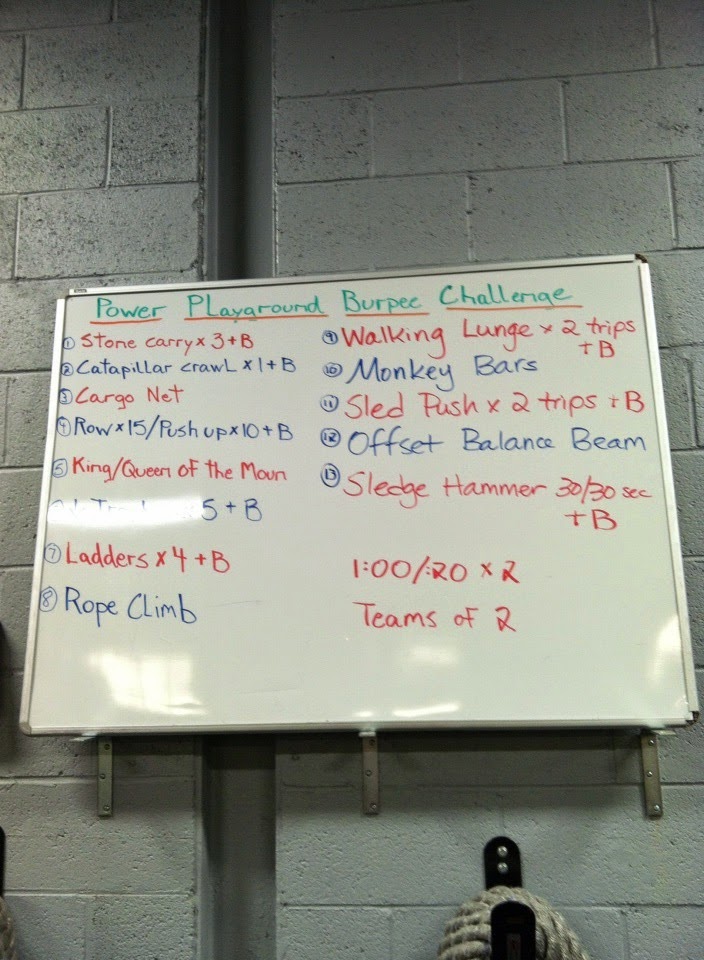 Power Playground Burpee Challenge
① Stone carry x 3 + B
② Catapillar crawl x 1 + B
③ Cargo Net
④ Row x 15/Push up x 10 + B
⑤ King/Queen of the Moun
5 + B
⑦ Ladders x 4 + B
⑧ Rope Climb
⑨ Walking Lunge x 2 trips
+ B
⑩ Monkey Bars
⑪ Sled Push x 2 trips + B
⑫ Offset Balance Beam
⑬ Sledge Hammer 30/30 sec
+ B
1:00/:20 x 2
Teams of 2